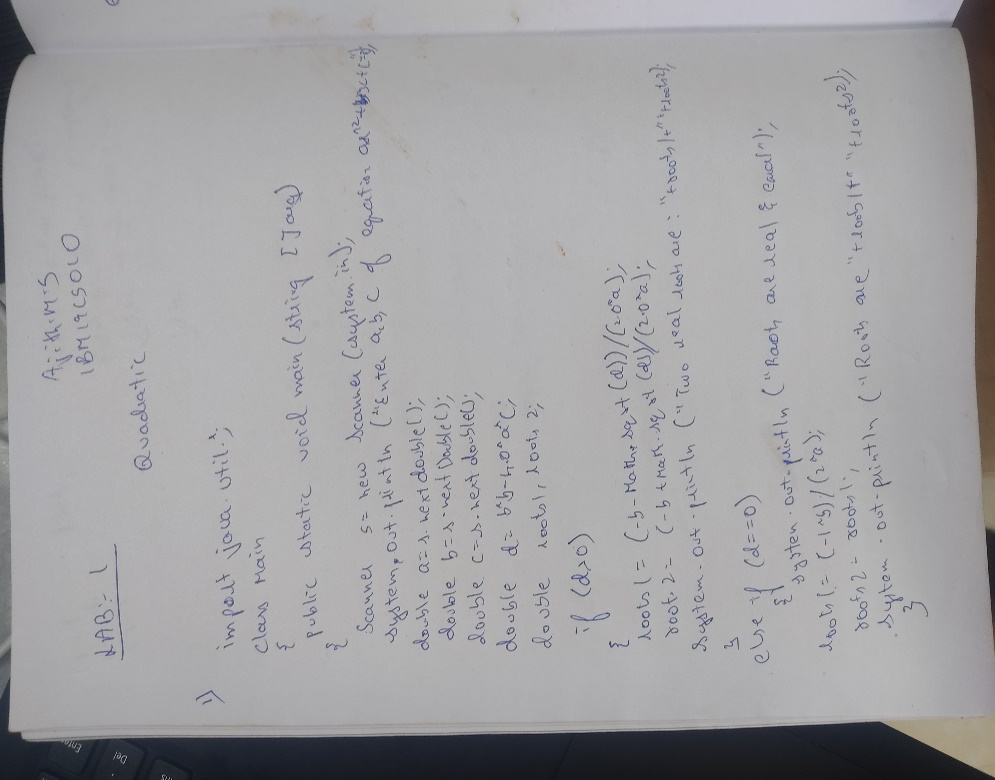 Ajith.M.S
1BM19CS010
LAB:- 1
Quadratic
1) import java.util.*;
class Main
{
public static void main(string []args)
{
Scanner s= new Scanner (system.in);
System.out.println ("Enter a,b, c of equation ax^2+bx+c=");
double a=s.next double();
double b=s.next Double();
double c=s.next double();
double d= b*b-4.0*a*c;
double roots1, roots2;
if (d>0)
{
roots1= (-b-Math.sqrt (d))/(2.0*a);
roots2= (-b+Math.sqrt (d))/(2.0*a);
System.out.println ("Two real roots are: "+roots1+" "+roots2);
}
else if (d==0)
{ System.out.println ("Roots are real & equal");
roots1= (-1*b)/(2*a);
roots2= roots1;
System.out.println ("Roots are "+roots1+" "+roots2);
}